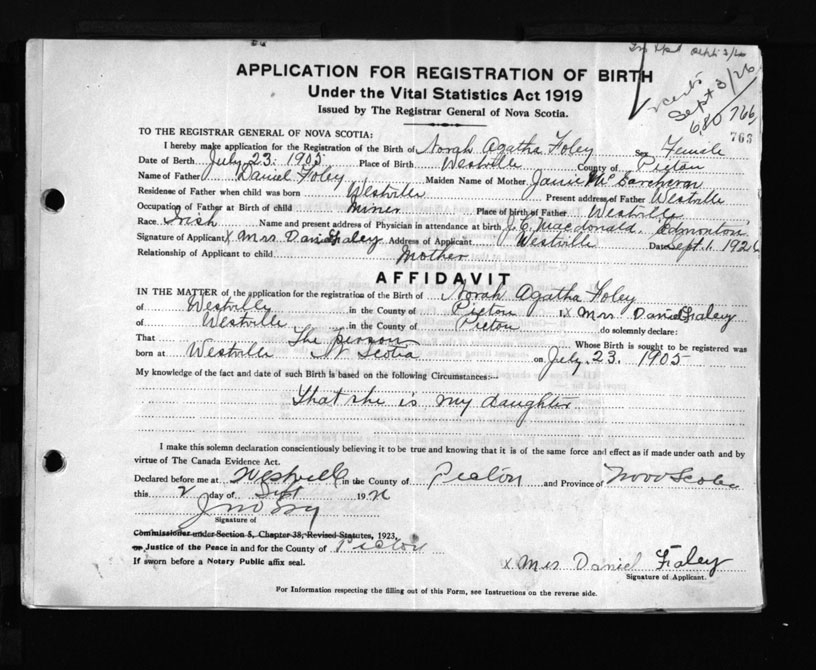 Sept 3/26
APPLICATION FOR REGISTRATION OF BIRTH
Under the Vital Statistics Act 1919
Issued by The Registrar General of Nova Scotia.
Sept 3/26
680766
763
TO THE REGISTRAR GENERAL OF NOVA SCOTIA:
I hereby make application for the Registration of the Birth of Norah Agatha Foley Sex Female
Date of Berth July 23. 1905 Place of Birth Westville County of Pictou
Name of Father Daniel Foley Maiden Name of Mother Janie
Residense of Father when child was born Westville Present address of Father Westville
Occupation of Father at Birth of child miner Place of birth of Father Westville
Race Irish Name and present address of Physician in attendance at birth J. C. Macdonald. Edmonton
Signature of Applicant X Mrs Daniel Faley Address of Applicant Westville Date Sept. 1. 1926
Relationship of Applicant to child Mother
AFFIDAVIT
IN THE MATTER of the application for the registration of the Birth of Norah Agatha Foley
of Westville in the County of Pictou I, X Mrs. Daniel Faley
of Westville in the County of Pictou do solemnly declare:
That The person Whose Birth is sought to be registered was
born at Westville N Scotia on July. 23. 1905
My knowledge of the fact and date of such Birth is based on the following Circumstances:—
That she is my daughter
I make this solemn declaration conscientiously believing it to be true and knowing that it is of the same force and effect as if made under oath and by
virtue of The Canada Evidence Act.
Declared before me at Westville in the County of Pictou and Province of Nova Scotia
this 2 day of Sept 1926
Signature of
Commissioner under Section 5, Chapter 38, Revised Statutes, 1923,
or Justice of the Peace in and for the County of Pictou
If sworn before a Notary Public affix seal.
X Mrs Daniel Faley
Signature of Applicant.
For Information respecting the filling out of this Form, see Instructions on the reverse side.